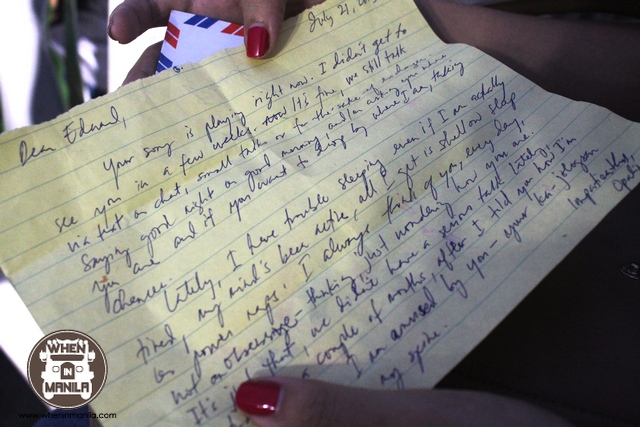 July 21,
Dear Edward,
Your song is playing right now. I didn't get to
see you in a few weeks. Now it's fine, we still talk
via text or chat, small talk or for the sake of
saying good night or good morning and I'm asking you where
you are and if you want to drop by where I am, taking
chances.
Lately, I have trouble sleeping even if I am actually
tired, my mind's been active, all I get is shallow sleep
or power naps. I always think of you, every day,
not an obsession - thinking, just wondering how you are.
It's just that, we didn't have a serious talk lately,
a couple of months, after I told you how I'm
I am amused by you - your
my spine.
Importantly,
WHEN
IN
MANILA
www.wheninmanila.com